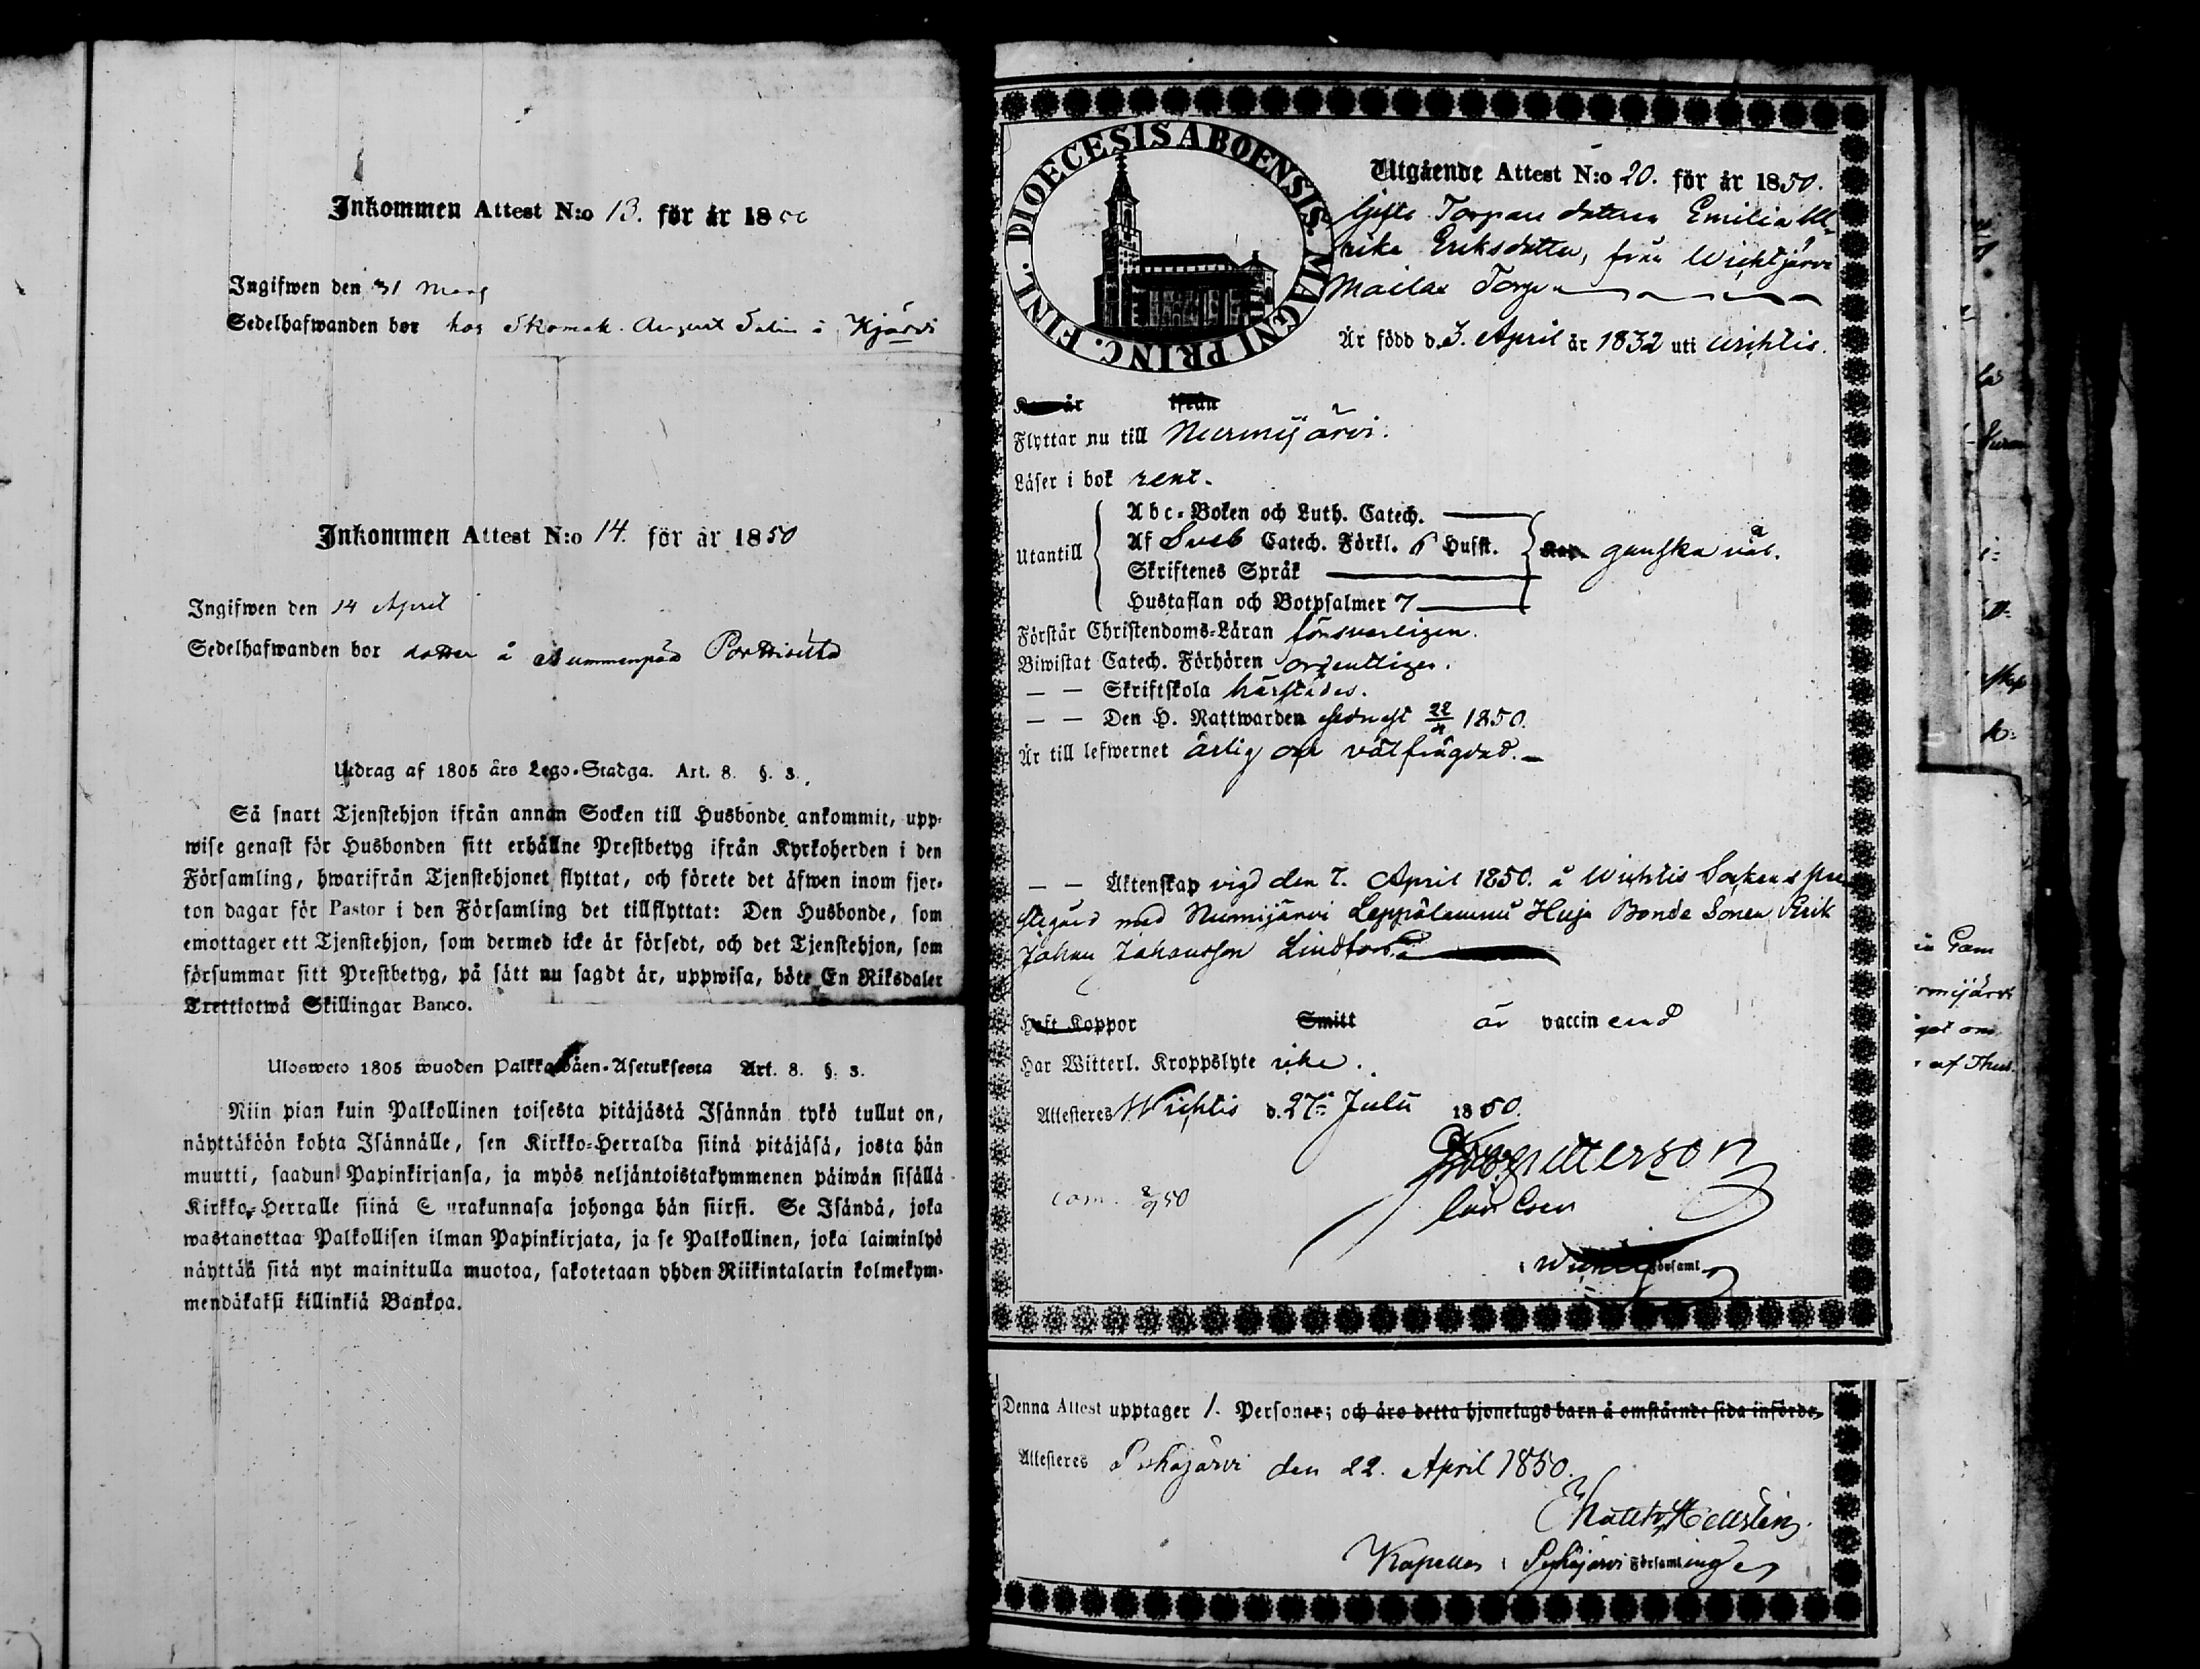 Inkommen Attest N:o 13. för år 1850
Ingifwen den 31 Mars
Sedelhafwanden bor hos Skomak. August Salin i Kjärvi
Inkommen Attest N:o 14. för år 1850
Ingifwen den 14 April
Sedelhafwanden bor dotter å Nummenpää
Utdrag af 1805 års Lego-Stadga. Art. 8. §. 3.
Så snart Tjenstehjon ifrån annan Socken till Husbonde ankommit, upp-
wise genast för Husbonden sitt erhållne Prestbetyg ifrån Kyrkoherden i den
Församling, hwarifrån Tjenstehjonet flyttat, och förete det äfwen inom fjor-
ton dagar för Pastor i den Församling det tillflyttat: Den Husbonde, som
emottager ett Tjenstehjon, som dermed icke är försedt, och det Tjenstehjon, som
försummar sitt Prestbetyg, på sätt nu sagdt är, uppwisa, böte En Riksdaler
Trettiotwå Skillingar Banco.
Ulosweto 1805 wuoden Palkkawäen-Asetuksesta Art. 8. §. 3.
Niin pian kuin Palkollinen toisesta pitäjästä Isännän tykö tullut on,
näyttäköön kohta Isännälle, sen Kirkko-Herralda siinä pitäjäsä, josta hän
muutti, saadun Papinkirjansa, ja myös neljäntoistakymmenen päiwän sisällä
Kirkko-Herralle siinä Seurakunnasa johonga hän siirsi. Se Isändä, joka
wastanottaa Palkollisen ilman Papinkirjata, ja se Palkollinen, joka laiminlyö
näyttää sitä nyt mainitulla muotoa, sakotetaan yhden Riikintalarin kolmekym-
mendäkaksi killinkiä Bankoa.
DIOECESIS ABOENSIS. MAGNI PRINC. FINL.
Utgående Attest N:o 20. för år 1850.
Gifta Torpare dottren Emilia Ul-
rika Eriksdotter, från Wichtjärvi
Mailas Torp
Är född d. 3. April år 1832 uti Wichtis.
ifrån
Flyttar nu till Nurmijärvi.
Läser i bok rent.
Utantill
Abc-Boken och Luth. Catech.
Af Sveb Catech. Förkl. 6 Hufst.
Skriftenes Språk
Hustaflan och Botpsalmer 7
ganska väl.
Förstår Christendoms-Läran försvarligen.
Biwistat Catech. Förhören ordentligen.
— — Skriftskola härstädes.
— — Den H. Nattwarden sednast 1850.
Är till lefwernet ärlig och välfrägdad.
— — Äktenskap vigd den 7. April 1850. å Wichtis Sockens Pre-
stegård med Nurmijärvi Leppälammi Huja Bonde Sonen Erik
Johan Johansson Lindfors.
Haft Koppor Smitt är vaccinerad
Har Witterl. Kroppslyte icke.
Attesteras Wichtis d. 27 Julii 1850.
com. 8/9 50
i Wichtis Församl
Denna Attest upptager 1. Personer; och äro detta hjonelags barn å omstående sida införde.
Attesteres Pyhäjärvi den 22. April 1850.
Kapellan i Pyhäjärvi Församling